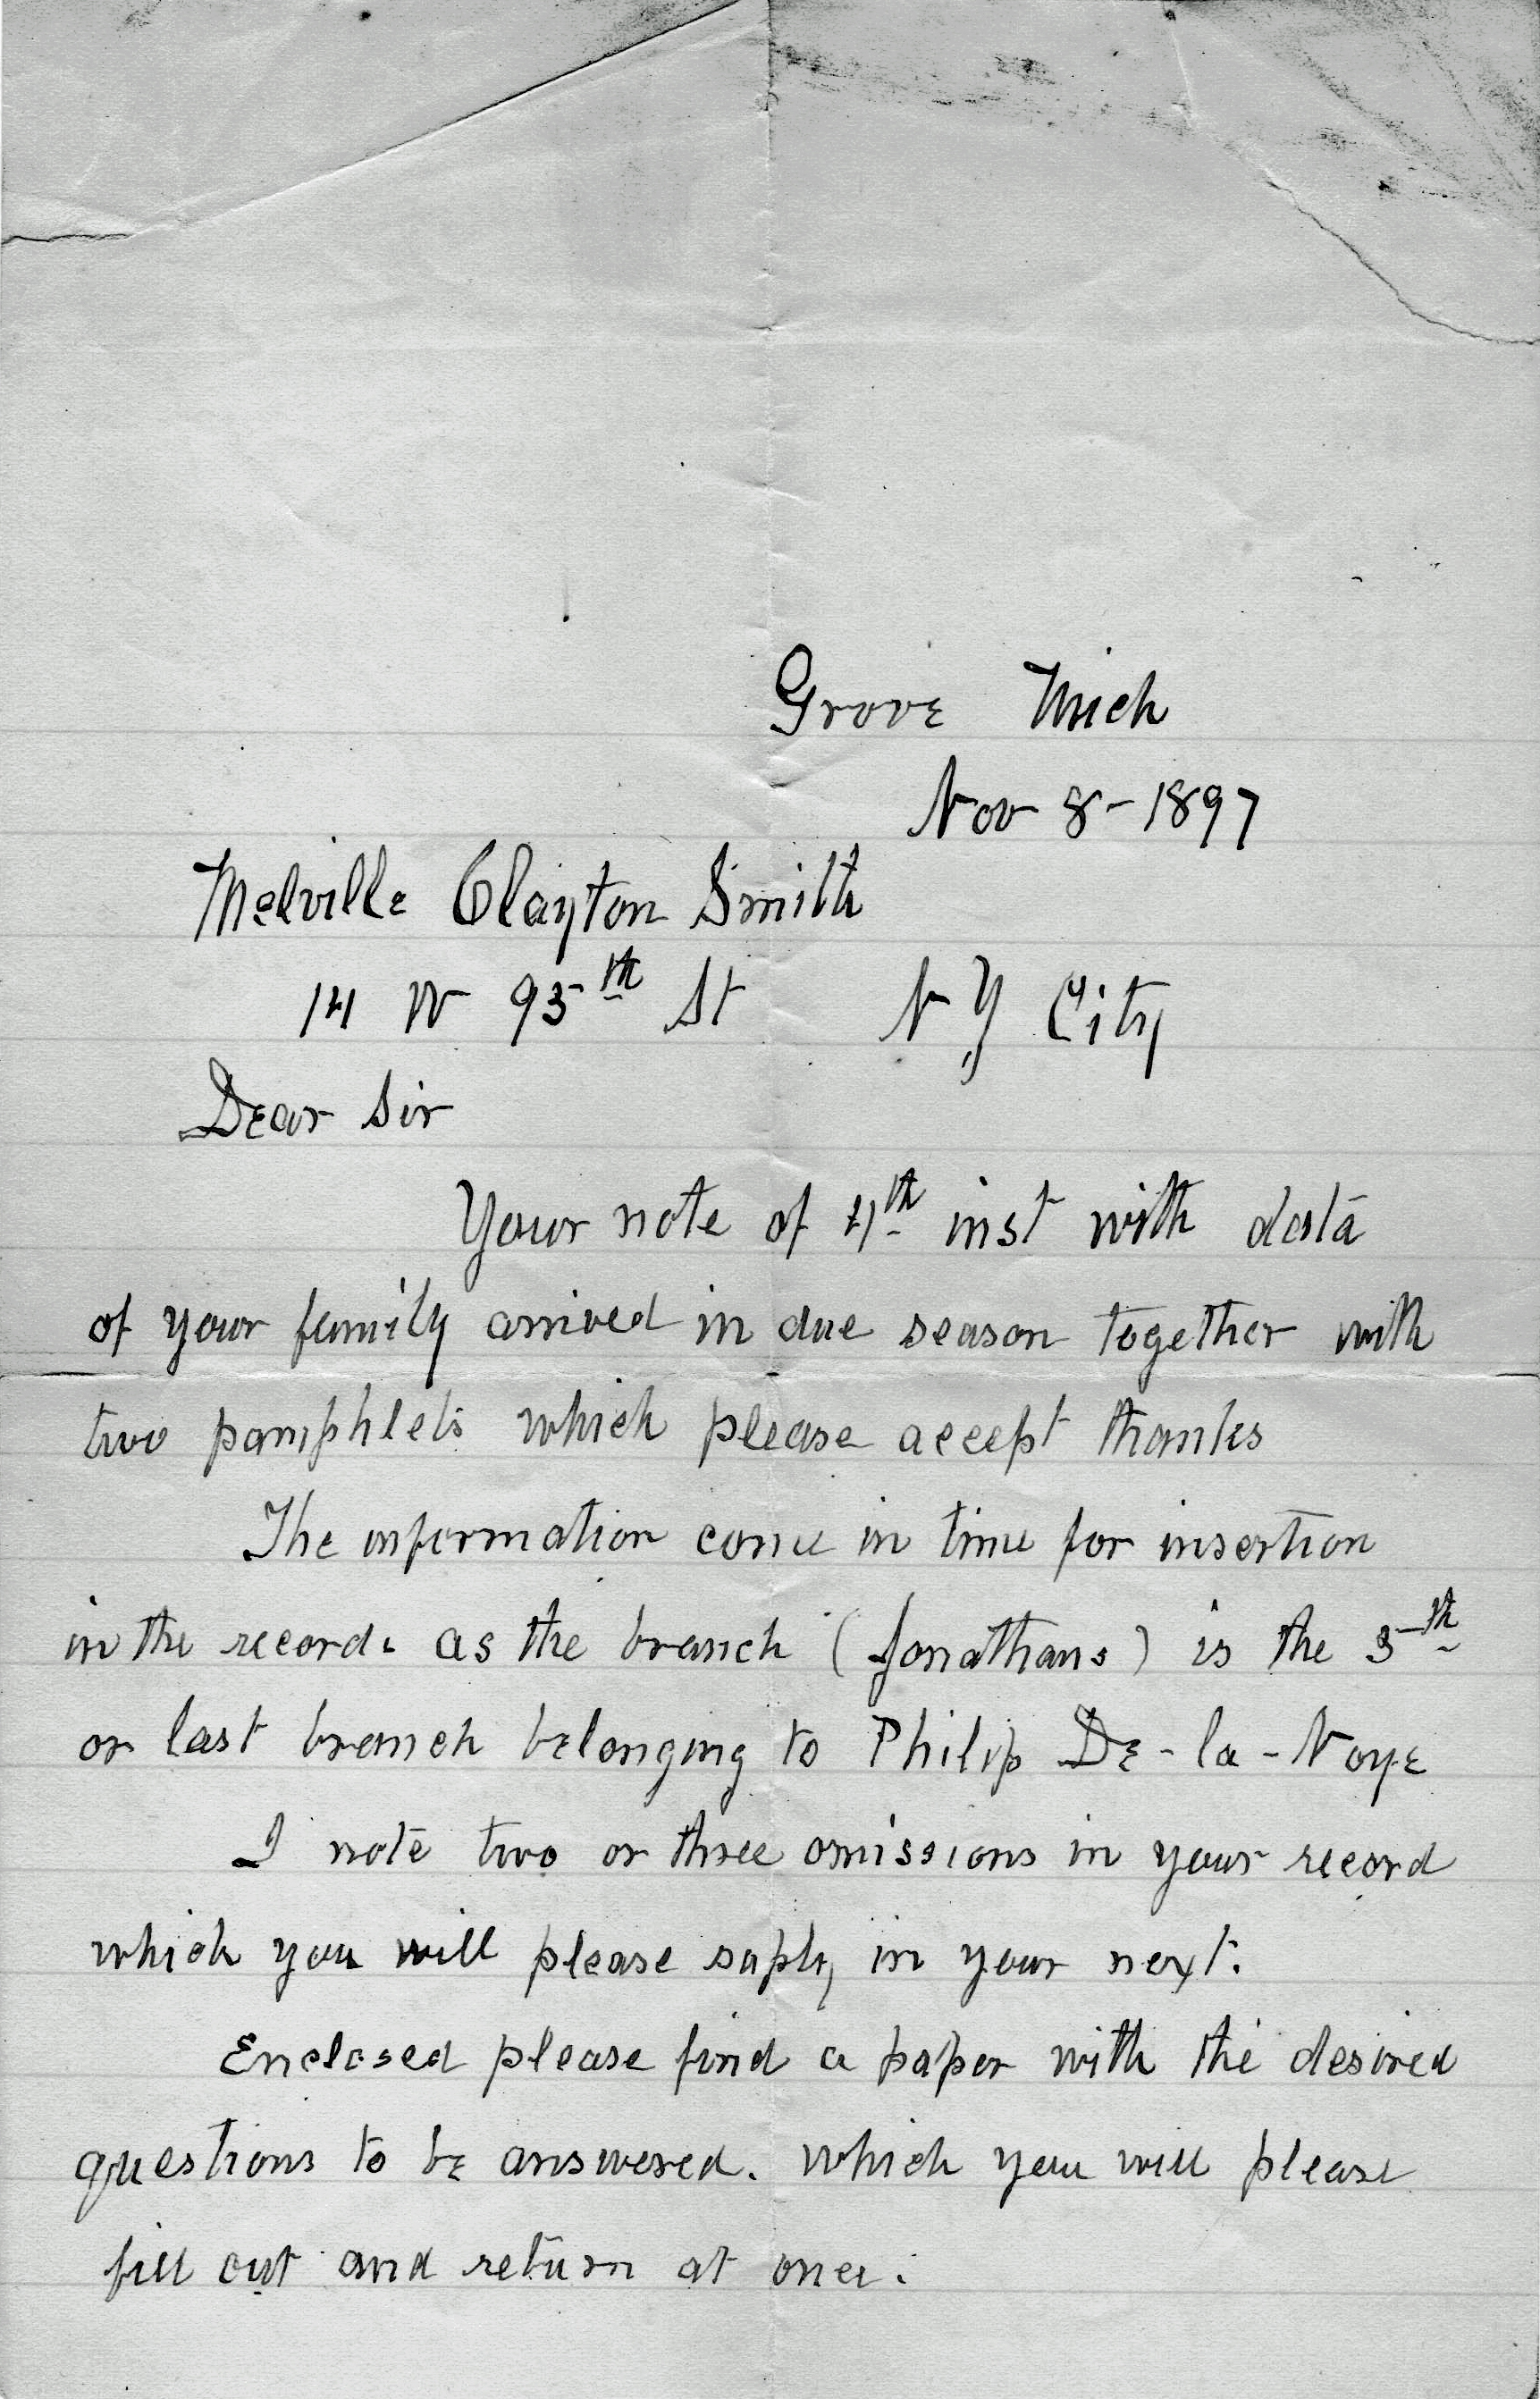 Grove Mich
Nov 8 - 1897
Melville Clayton Smith
14 W 95th St N. Y. City
Dear Sir
Your note of 4th inst with data
of your family arrived in due season together with
two pamphlets which please accept thanks
The information come in time for insertion
in the record. as the branch (Jonathans) is the 5th
or last branch belonging to Philip De-la-Noye
I note two or three omissions in your record
which you will please suply in your next.
Enclosed please find a paper with the desired
questions to be answered. which you will please
fill out and return at once.